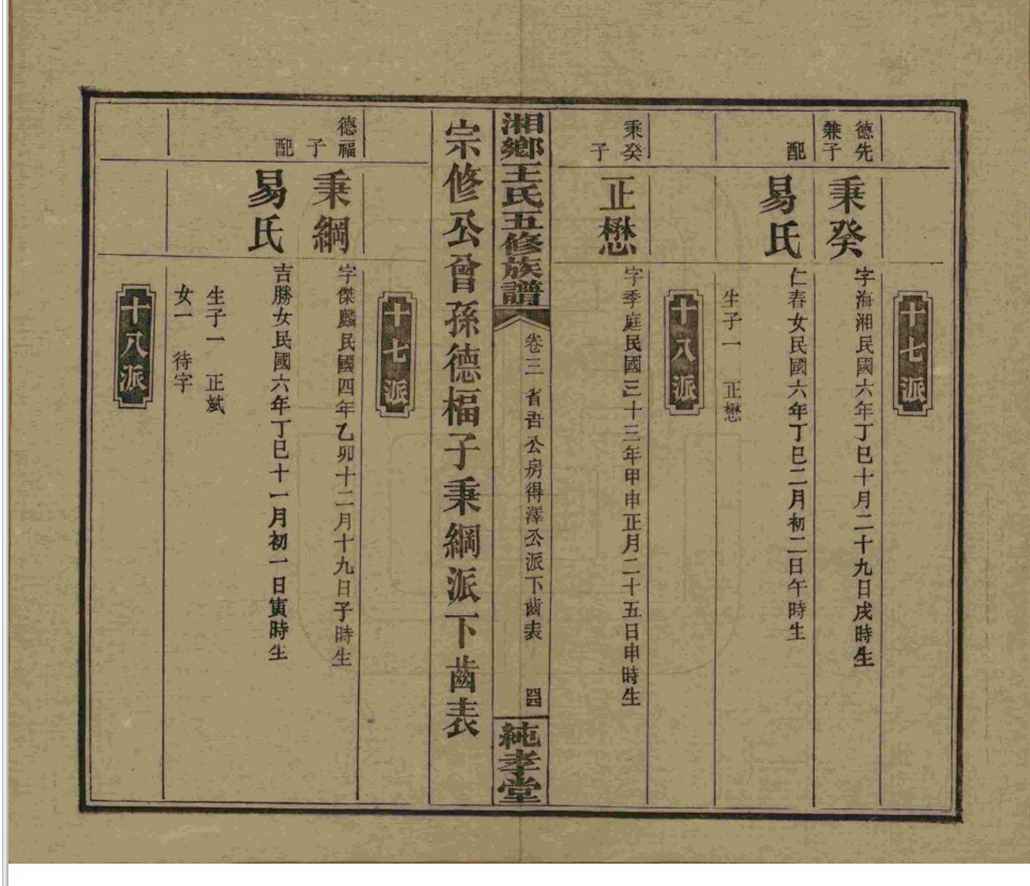 十七派
德先
兼子
秉癸
字海湘民國六年丁巳十月二十九日戌時生
配
易氏
仁春女民國六年丁巳二月初二日午時生
生子一 正懋
十八派
秉癸
子
正懋
字季庭民國三十三年甲申正月二十五日申時生
湘鄉王氏五修族譜
卷三 省吾公房得澤公派下齒表
純孝堂
宗修公曾孫德福子秉綱派下齒表
十七派
德福
子
秉綱
字傑麟民國四年乙卯十二月十九日子時生
配
易氏
吉勝女民國六年丁巳十一月初一日寅時生
生子一 正斌
女一 待字
十八派